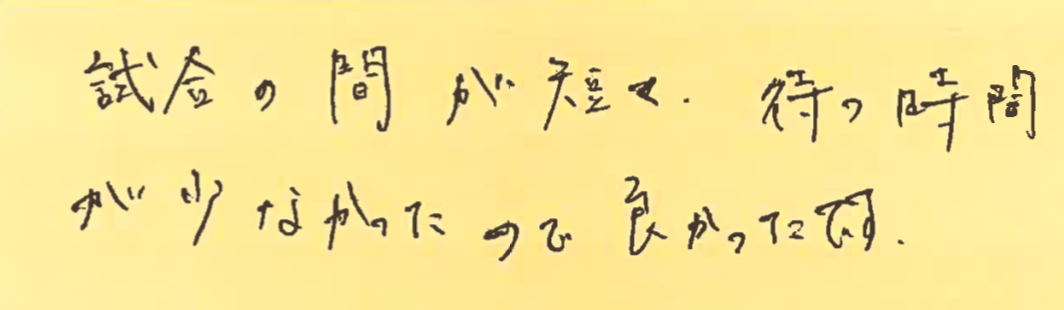 試合の間が短く、待つ時間
が少なかったので良かったです。